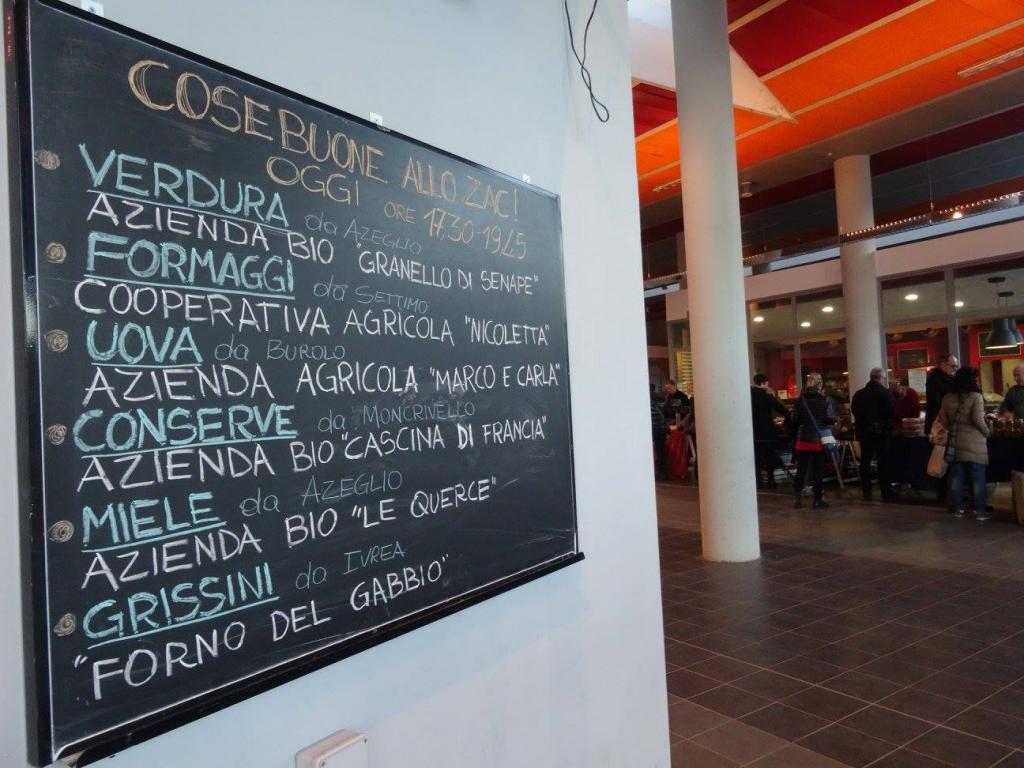 COSE BUONE ALLO ZAC!
OGGI ORE 17,30-19,45
VERDURA da AZEGLIO
AZIENDA BIO "GRANELLO DI SENAPE"
FORMAGGI da SETTIMO
COOPERATIVA AGRICOLA "NICOLETTA"
UOVA da BUROLO
AZIENDA AGRICOLA "MARCO E CARLA"
CONSERVE da MONCRIVELLO
AZIENDA BIO "CASCINA DI FRANCIA"
MIELE da AZEGLIO
AZIENDA BIO "LE QUERCE"
GRISSINI da IVREA
"FORNO DEL GABBIO"